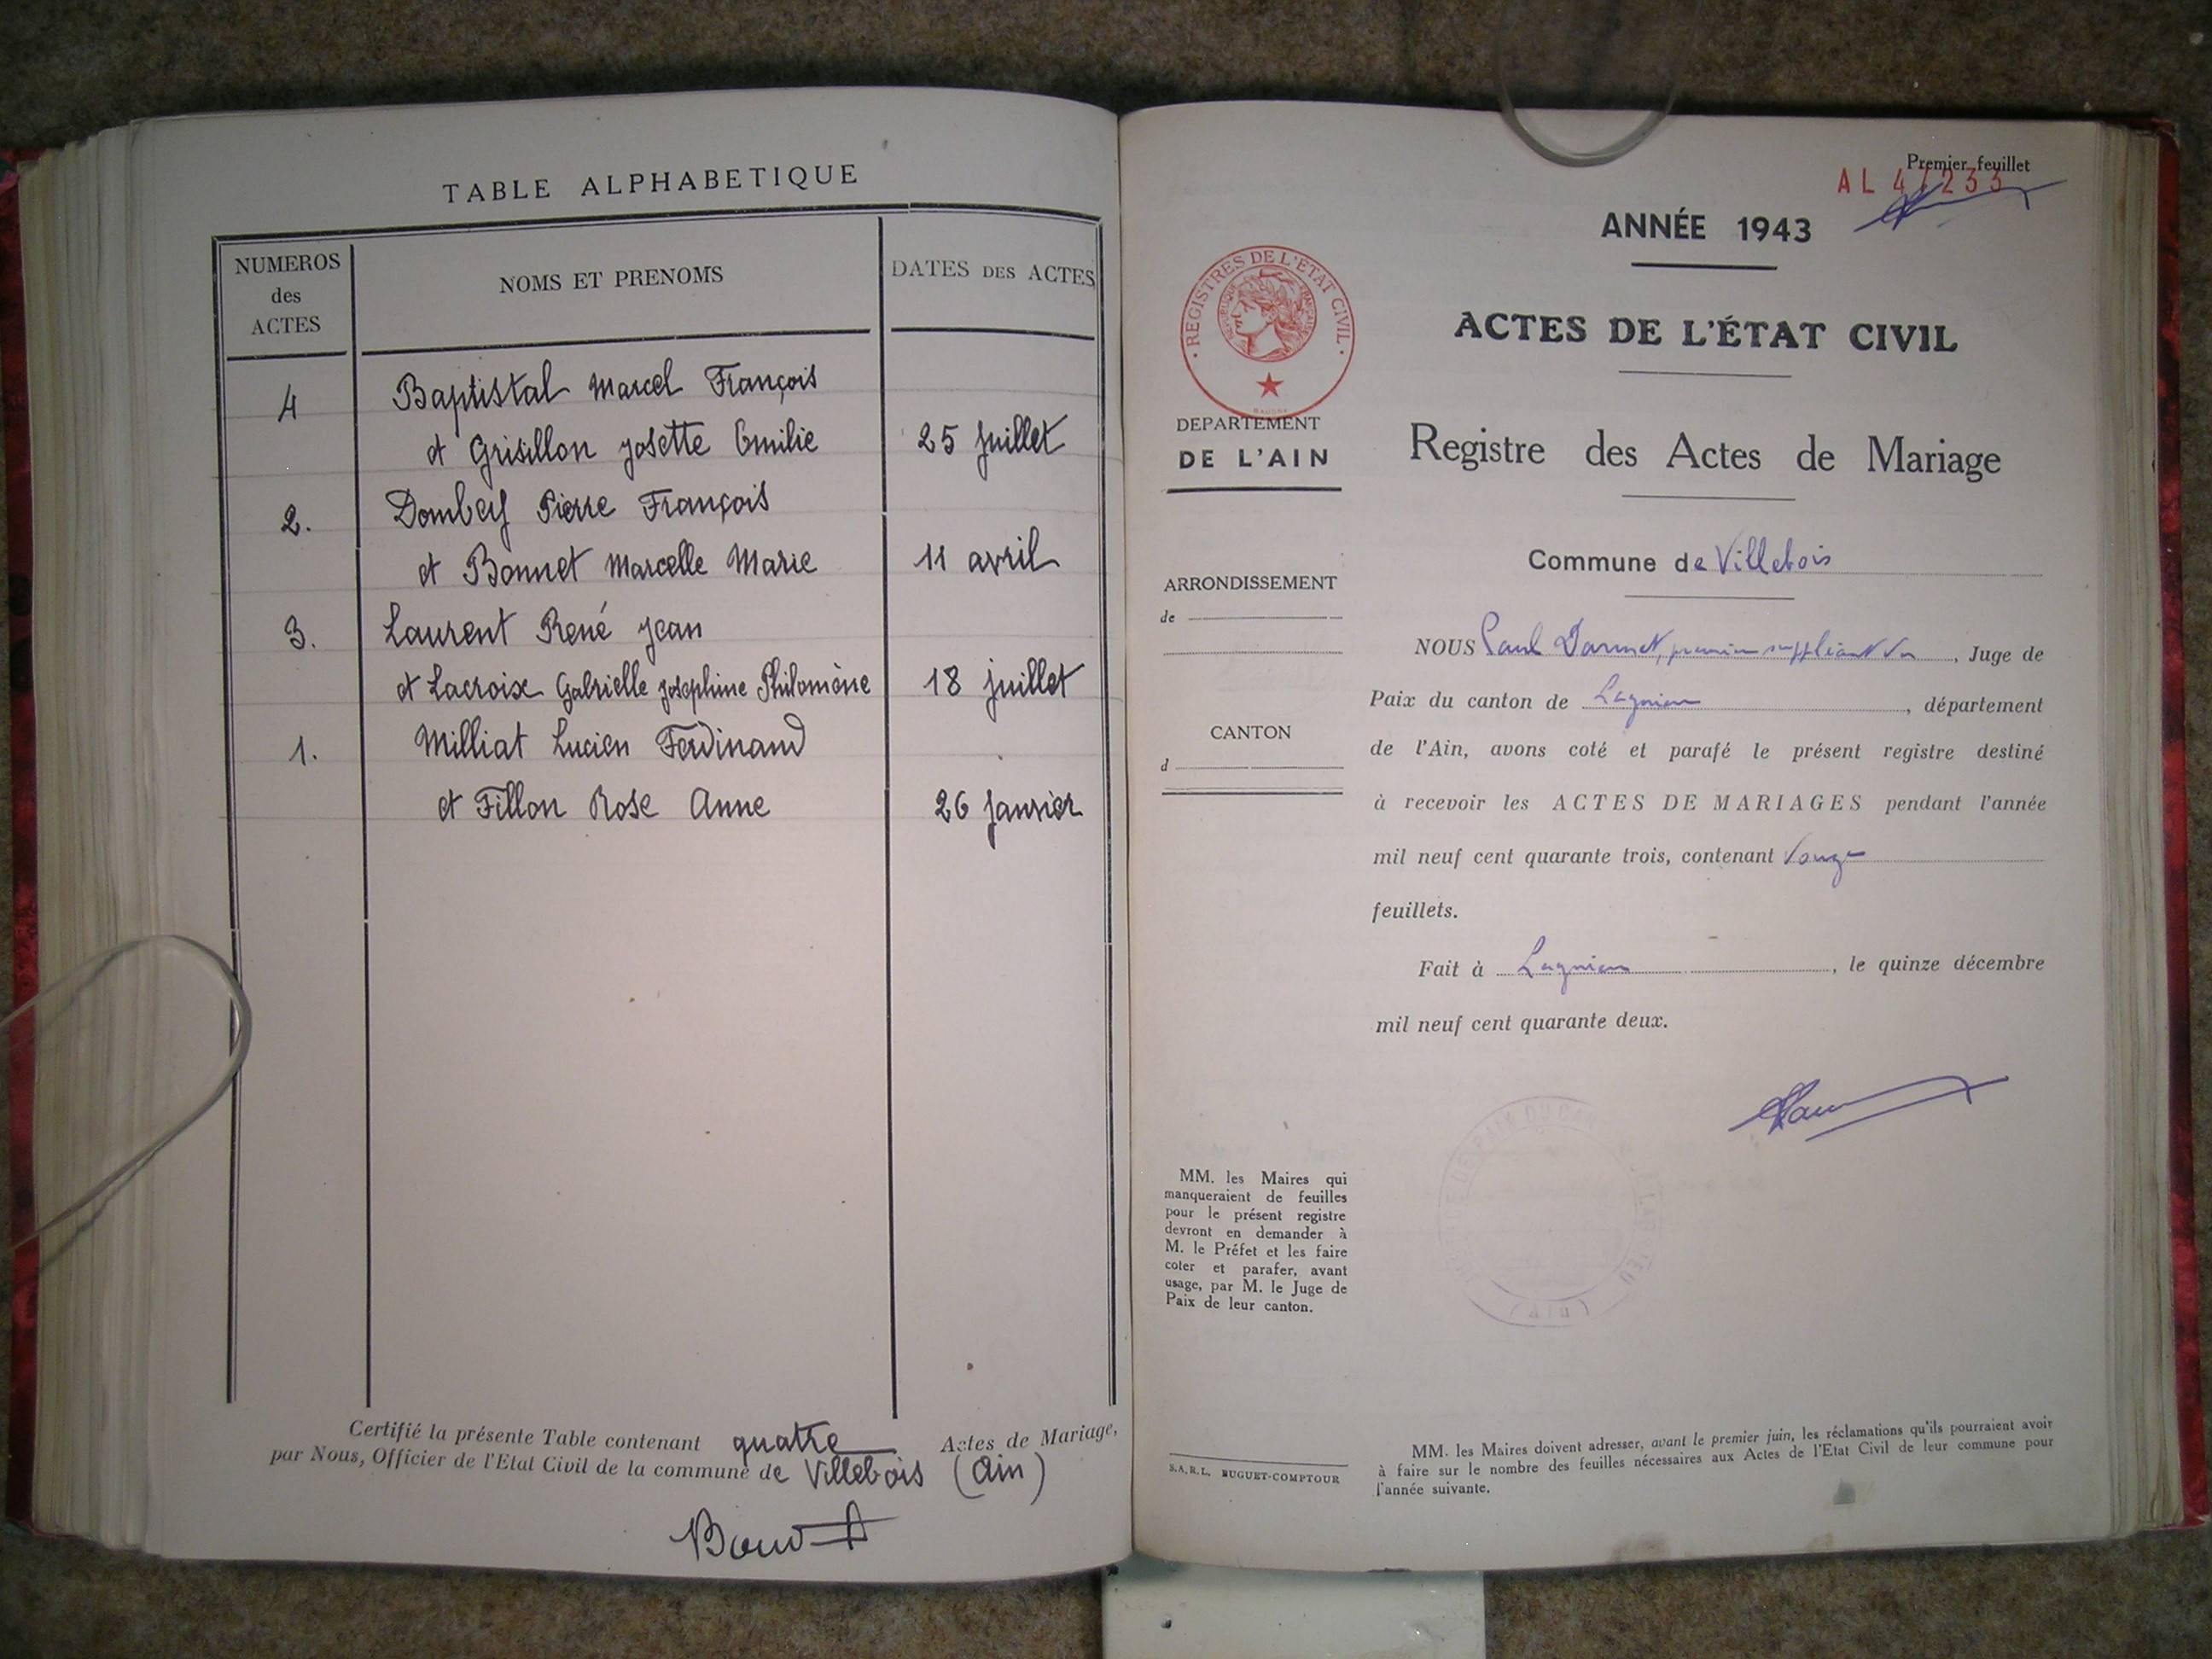 TABLE ALPHABETIQUE
NUMEROS
des
ACTES
NOMS ET PRENOMS
DATES DES ACTES
4
Baptistal Marcel François
et Grisillon Josette Emilie
25 Juillet
2.
Dombey Pierre François
et Bonnet Marcelle Marie
11 avril
3.
Laurent René Jean
et Lacroix Gabrielle Joséphine Philomène
18 juillet
1.
Milliat Lucien Ferdinand
et Fillon Rose Anne
26 Janvier
Certifié la présente Table contenant quatre Actes de Mariage,
par Nous, Officier de l'Etat Civil de la commune de Villebois (Ain)
Premier feuillet
AL 47233
ANNÉE 1943
· REGISTRES DE L'ÉTAT CIVIL ·
REPUBLIQUE FRANÇAISE
ACTES DE L'ÉTAT CIVIL
DEPARTEMENT
DE L'AIN
Registre des Actes de Mariage
Commune de Villebois
ARRONDISSEMENT
de
CANTON
d
NOUS Paul Darmet, premier suppléant du, Juge de
Paix du canton de Lagnieu, département
de l'Ain, avons coté et parafé le présent registre destiné
à recevoir les ACTES DE MARIAGES pendant l'année
mil neuf cent quarante trois, contenant
feuillets.
Fait à Lagnieu, le quinze décembre
mil neuf cent quarante deux.
MM. les Maires qui
manqueraient de feuilles
pour le présent registre
devront en demander à
M. le Préfet et les faire
coter et parafer, avant
usage, par M. le Juge de
Paix de leur canton.
(Ain)
S.A.R.L. BUGUET-COMPTOUR
MM. les Maires doivent adresser, avant le premier juin, les réclamations qu'ils pourraient avoir
à faire sur le nombre des feuilles nécessaires aux Actes de l'Etat Civil de leur commune pour
l'année suivante.